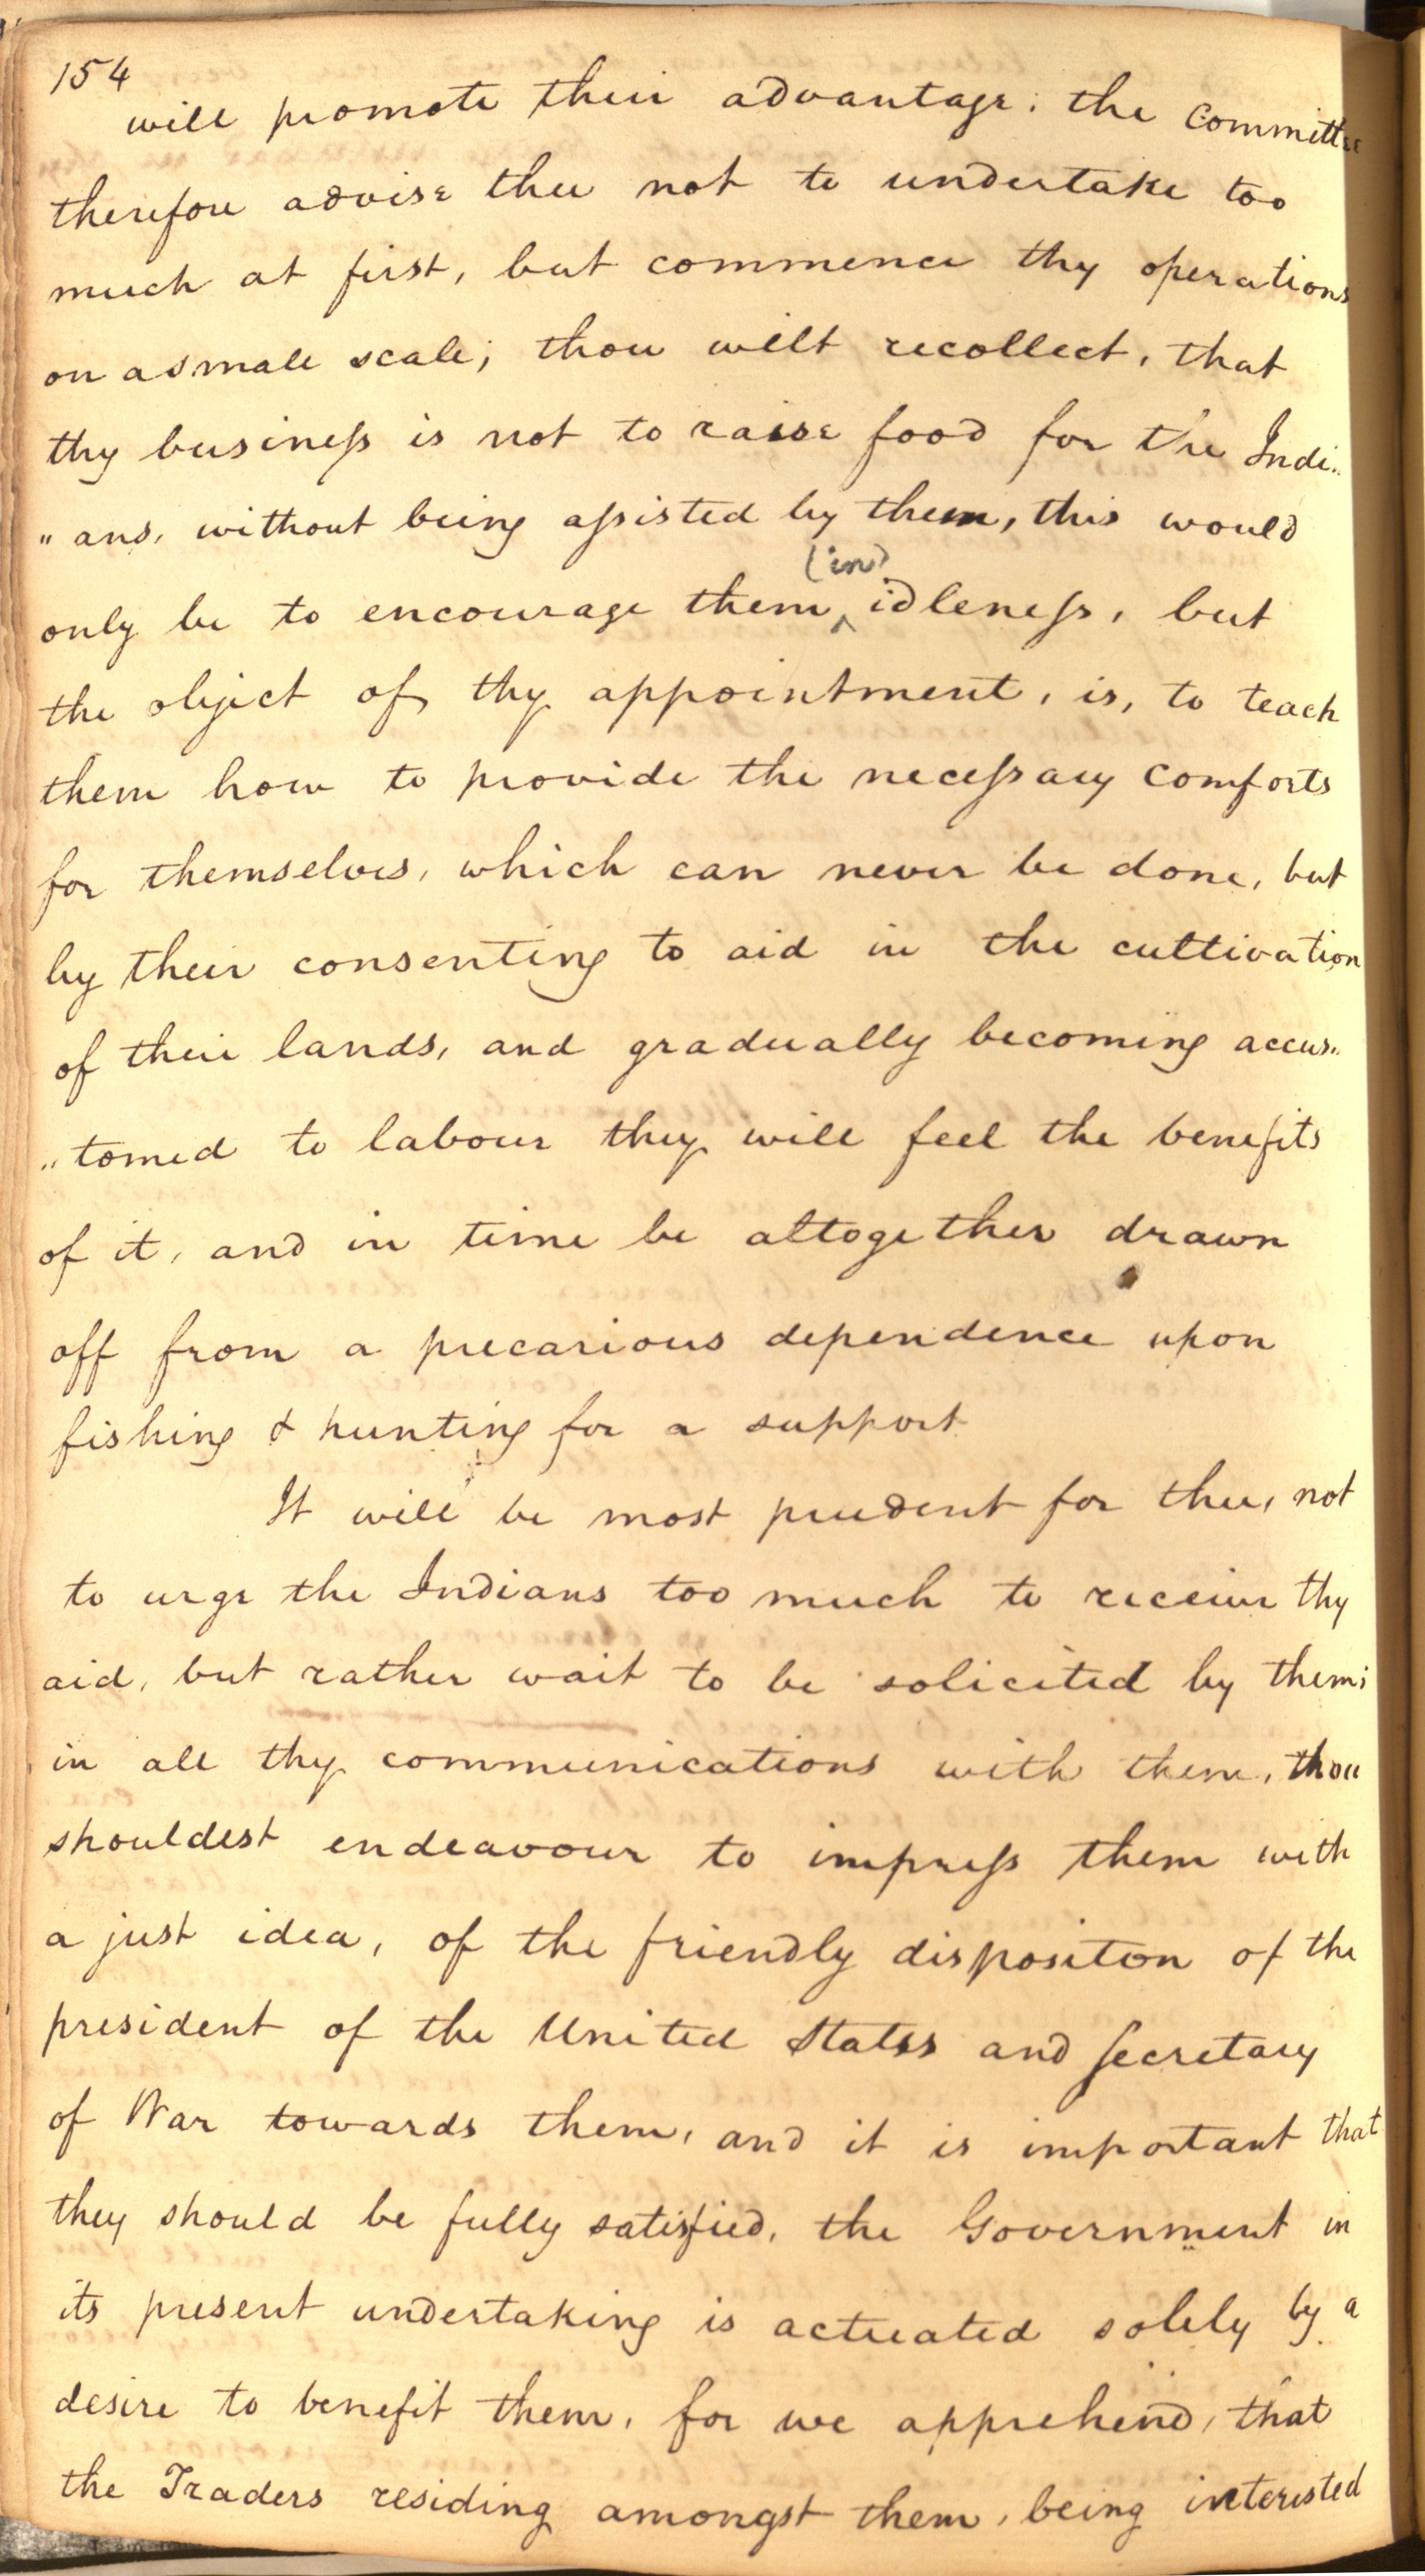 154
will promote their advantage: the Committee
therefore advise thee not to undertake too
much at first, but commence thy operations
on a small scale; thou wilt recollect, that
thy busineſs is not to raise food for the Indi„
„ans, without being aſsisted by them, this would
(in)
only be to encourage them ^ idleneſs, but
the object of thy appointment, is, to teach
them how to provide the neceſsary Comforts
for themselves, which can never be done, but
by their consenting to aid in the cultivation
of their lands, and gradually becoming accus„
„tomed to labour they will feel the benefits
of it, and in time be altogether drawn
off from a precarious dependence upon
fishing & hunting for a support
It will be most prudent for thee, not
to urge the Indians too much to receive thy
aid, but rather wait to be solicited by them;
in all thy communications with them, thou
shouldest endeavour to impreſs them with
a just idea, of the friendly dispositon of the
president of the United States and Secretary
of War towards them, and it is important that
they should be fully satisfied, the Government in
its present undertaking is actuated solely by a
desire to benefit them, for we apprehend, that
the Traders residing amongst them, being interested